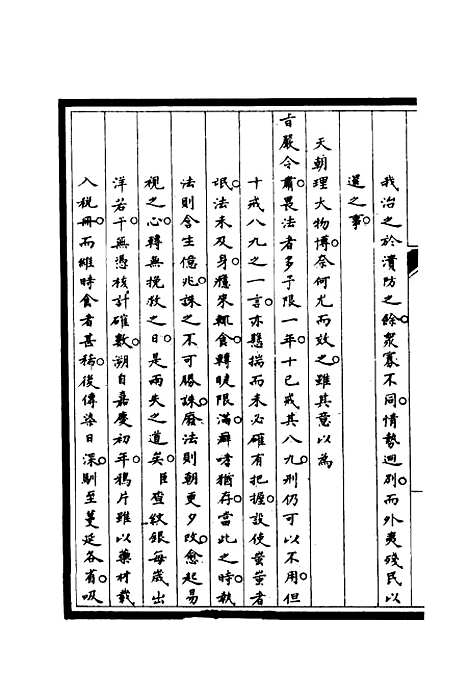 我治之於潰防之餘衆寡不同情勢迥別而外夷殘民以
逞之事
天朝理大物博奈何尤而效之雖其意以為
旨嚴令肅畏法者多予限一年十已戒其八九刑仍可以不用但
十戒八九之一言亦懸揣而未必確有把握設使蚩蚩者
氓法未及身癮來輒食轉瞬限滿癖嗜猶存當此之時執
法則含生億兆誅之不可勝誅廢法則朝更夕改愈起易
視之心轉無挽救之日是兩失之道矣臣查紋銀每歲出
洋若干無憑核計確數溯自嘉慶初年鴉片雖以藥材載
入稅冊而維時食者甚稀後傳染日深馴至蔓延各省吸